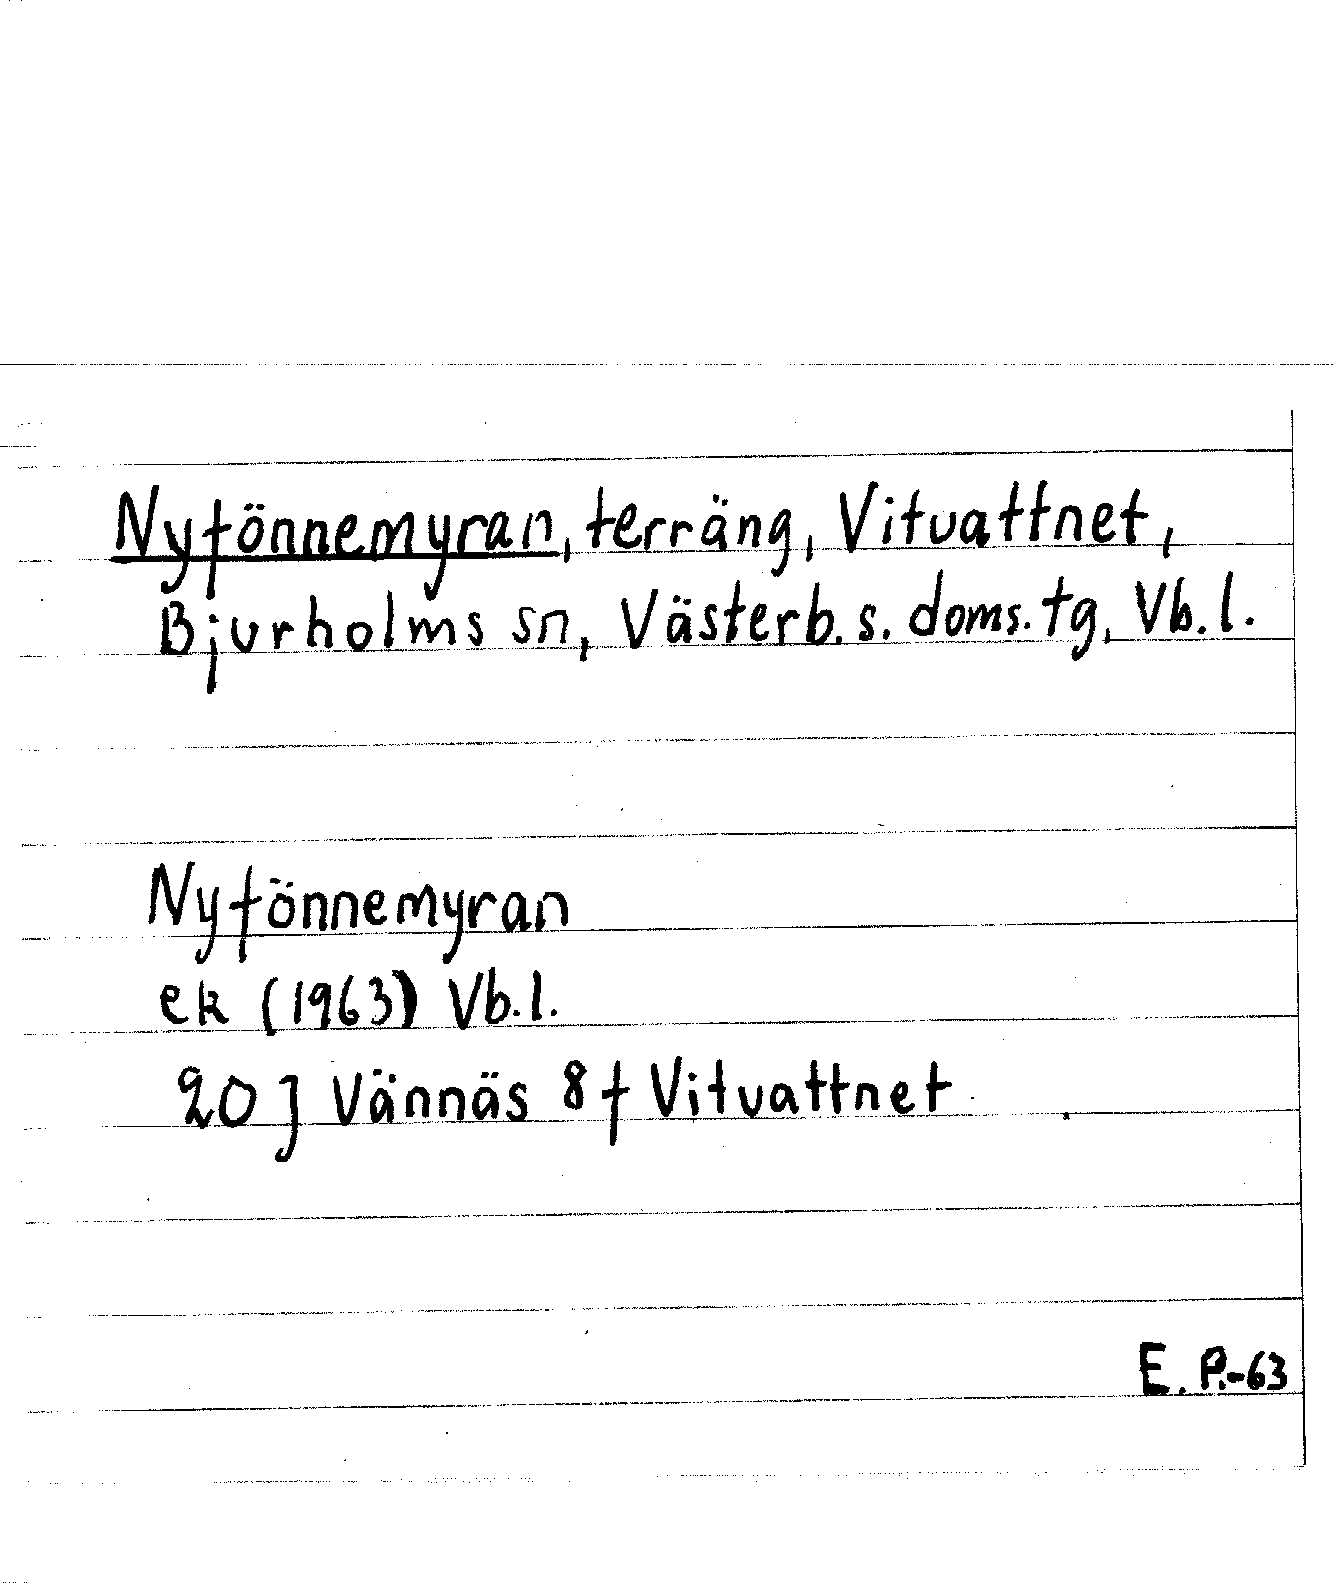 Nyfönnemyran, terräng, Vitvattnet,
Bjurholms sn, Västerb. s. doms. tg, Vb. l.
Nyfönnemyran
ek (1963) Vb. l.
20 J Vännäs 8 f Vitvattnet
E. P.-63